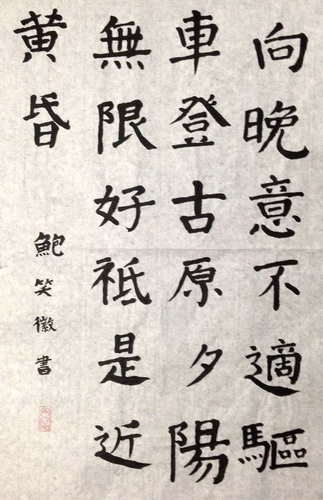 向晚意不適驅
車登古原夕陽
無限好祗是近
黄昏
鮑笑徽書